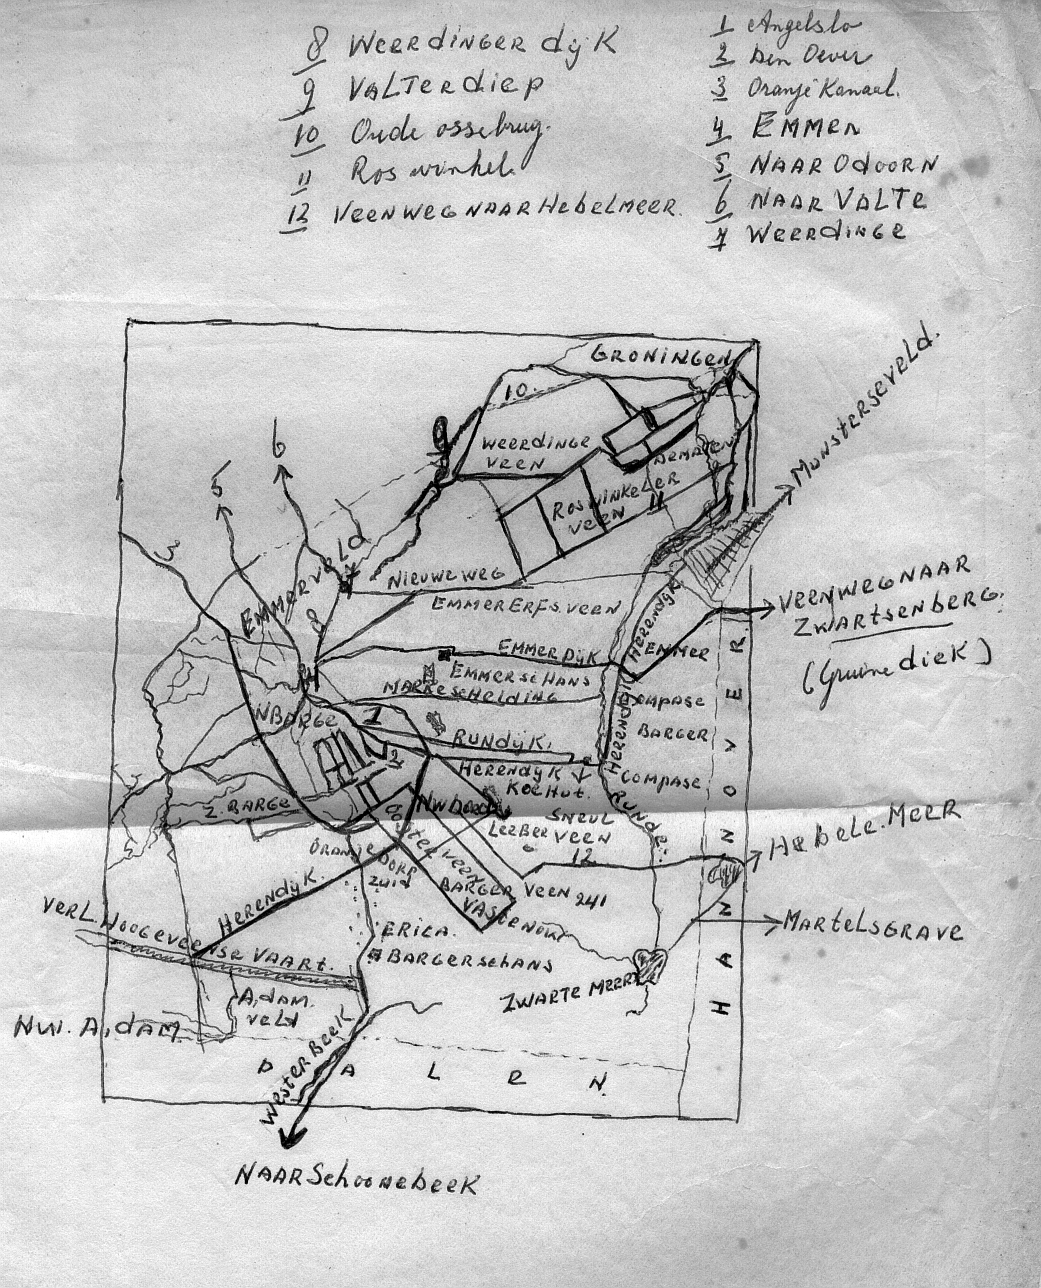 8 WEERdiNGER dijK
9 VALTERdiEP
10 Oude ossebrug.
11 Roswinkel
12 VEENWEG NAAR HebELMEER.
1 Angelslo
2 Den Oever
3 Oranje Kanaal.
4 EMMEN
5 NAAR OdOORN
6 NAAR VALTE
7 WEERdiNGE
GRONINGEN
MUNSTERSEVELd.
10.
6
9
WEERdiNGE
VEEN
5
ROSWINKELER
VEEN
11
3
EMMERVELd
7
NIEUWEWEG
EMMERERFS.VEEN
8
HERENdijK
VEENWEG NAAR
ZWARTSENBERG.
(Gruune diek)
EMMERdijK
EMMER
4
EMMERSCHANS
MARKESCHEIDING
COMPASC
NBARGE
1
HERENdijK
BARGER
RUNdijK.
2
HERENdijK
KOEHUT.
COMPASC
Z.BARGE
RUNDE.
LEEBEE
VEEN
12
HEbELE.MEER
ORANJE
DORP
ZUid
OOSTERVEEN
BARGER VEEN 241
HERENdijK.
VERL.HOOGEVEENSE VAART.
ERICA.
MARTELSGRAVE
BARGERSCHANS
ZWARTE MEER
A,dAM.
VELd
NW. A,dAM.
HANNOVER
WESTERBEEK
PALEN.
NAAR Schoonebeek